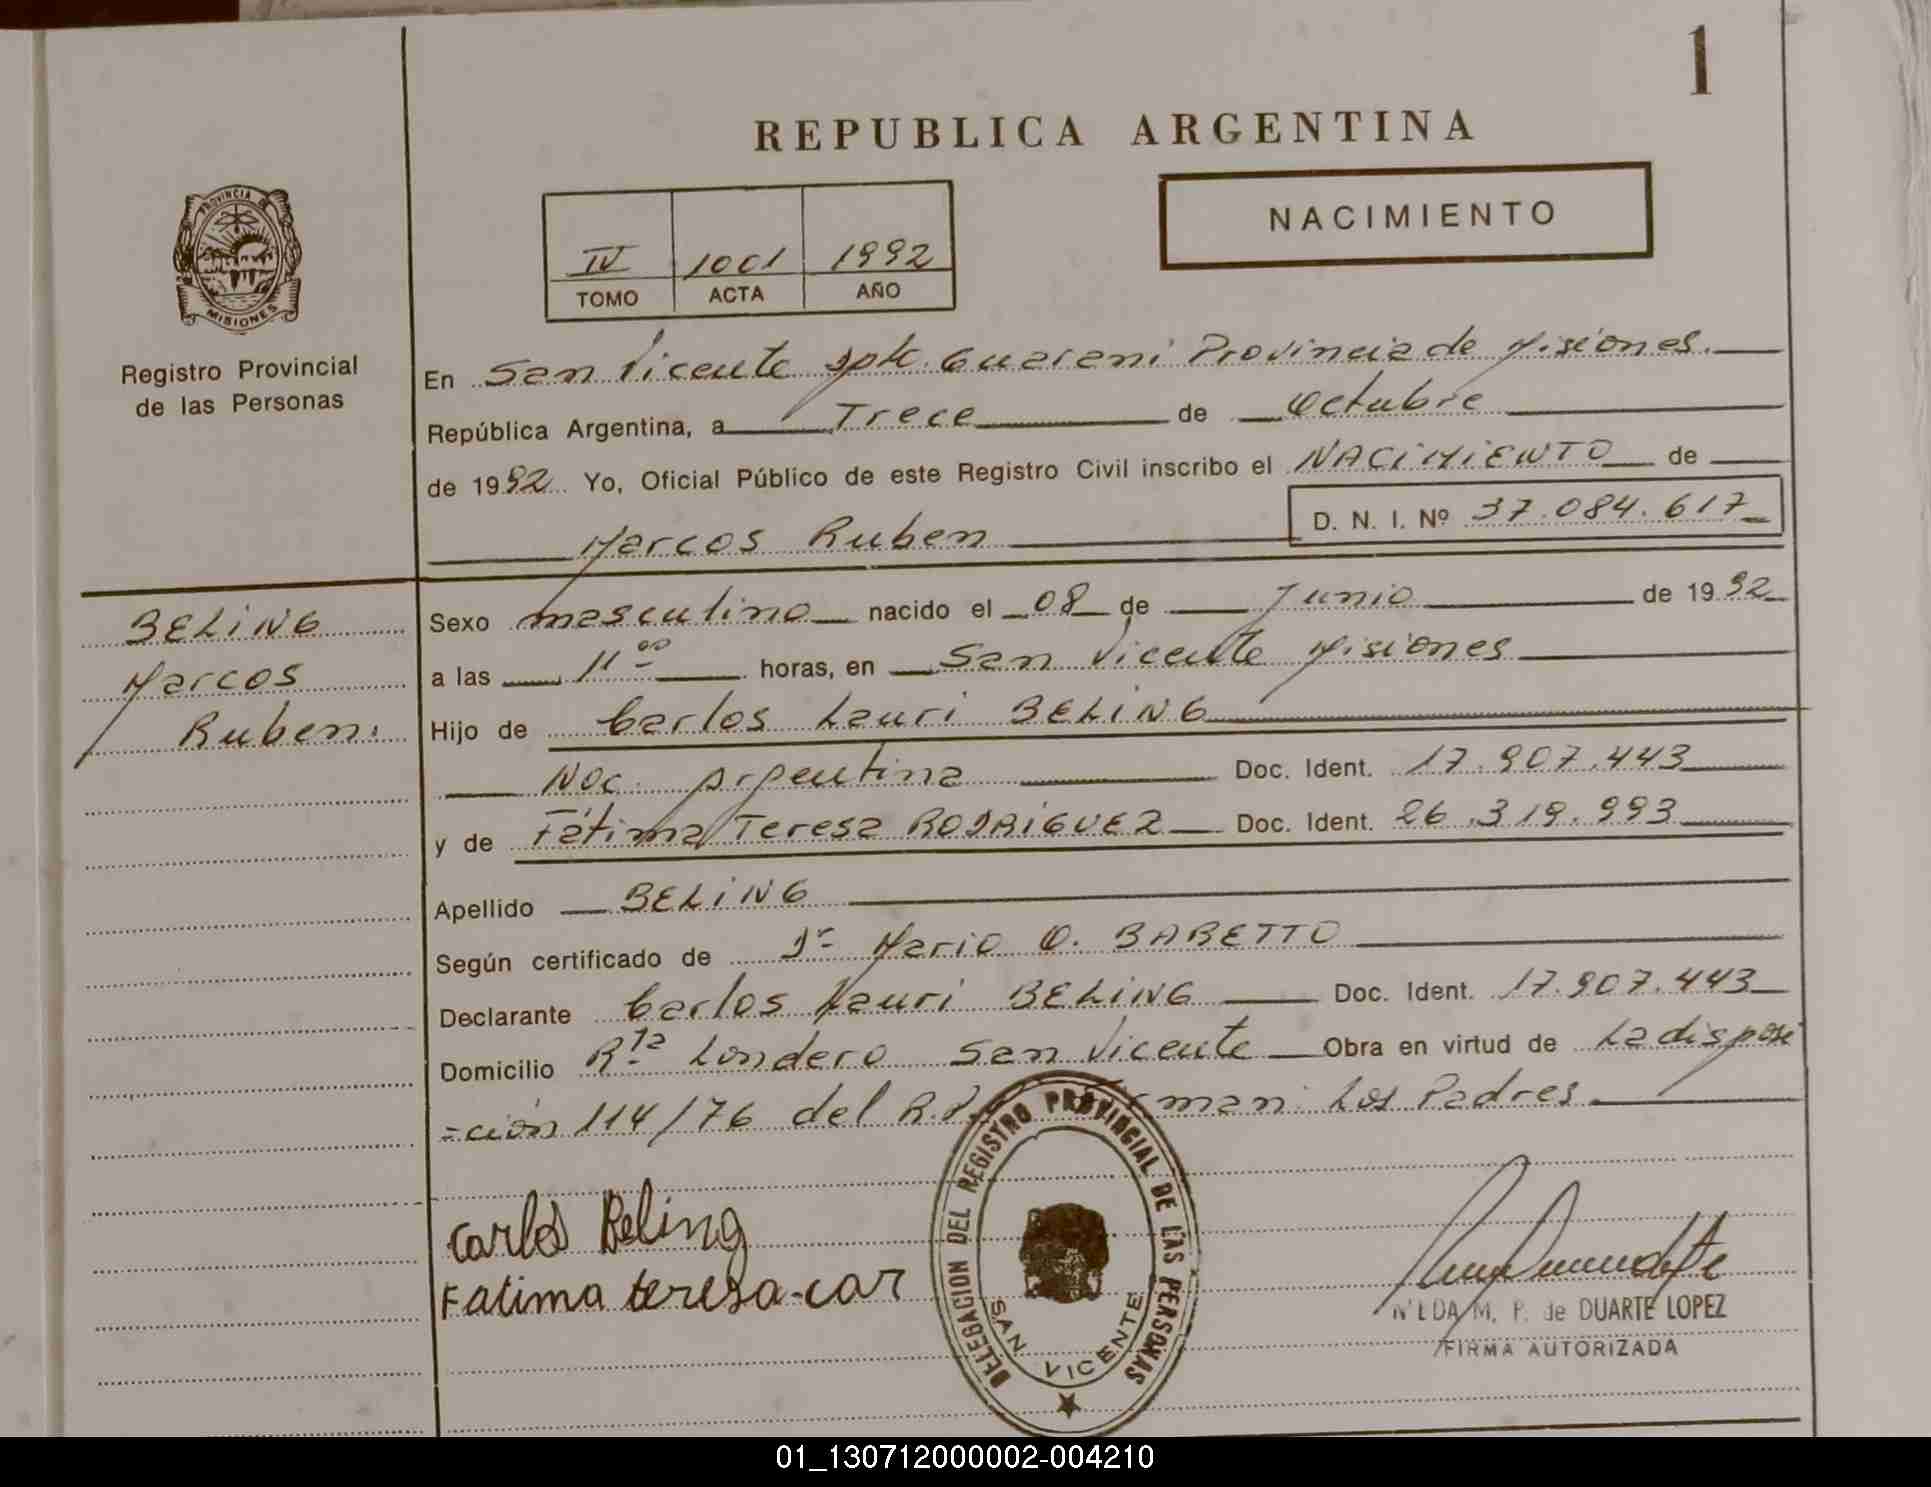 1
REPUBLICA ARGENTINA
NACIMIENTO
PROVINCIA DE
MISIONES
Registro Provincial
de las Personas
IV 1001 1992
TOMO ACTA AÑO
En San Vicente Dpto. Guarani Provincia de Misiones.
República Argentina, a Trece de Octubre
de 1992 Yo, Oficial Público de este Registro Civil inscribo el NACIMIENTO de
Marcos Ruben D. N. I. Nº 37.084.617
BELING
Marcos
Ruben.
Sexo masculino nacido el 08 de Junio de 1992
a las 11 00 horas, en San Vicente Misiones
Hijo de Carlos Lauri BELING
Nac. Argentina Doc. Ident. 17.907.443
y de Fátima Teresa RODRIGUEZ Doc. Ident. 26.319.993
Apellido BELING
Según certificado de Dr Mario O. BARETTO
Declarante Carlos Lauri BELING Doc. Ident. 17.907.443
Domicilio Rta Londero San Vicente Obra en virtud de La disposi
=ción 114/76 del R.P. man: Los Padres
DELEGACION DEL REGISTRO PROVINCIAL DE LAS PERSONAS
SAN VICENTE
Carlos Beling
Fatima teresa-car
M. P. de DUARTE LOPEZ
FIRMA AUTORIZADA
01_130712000002-004210